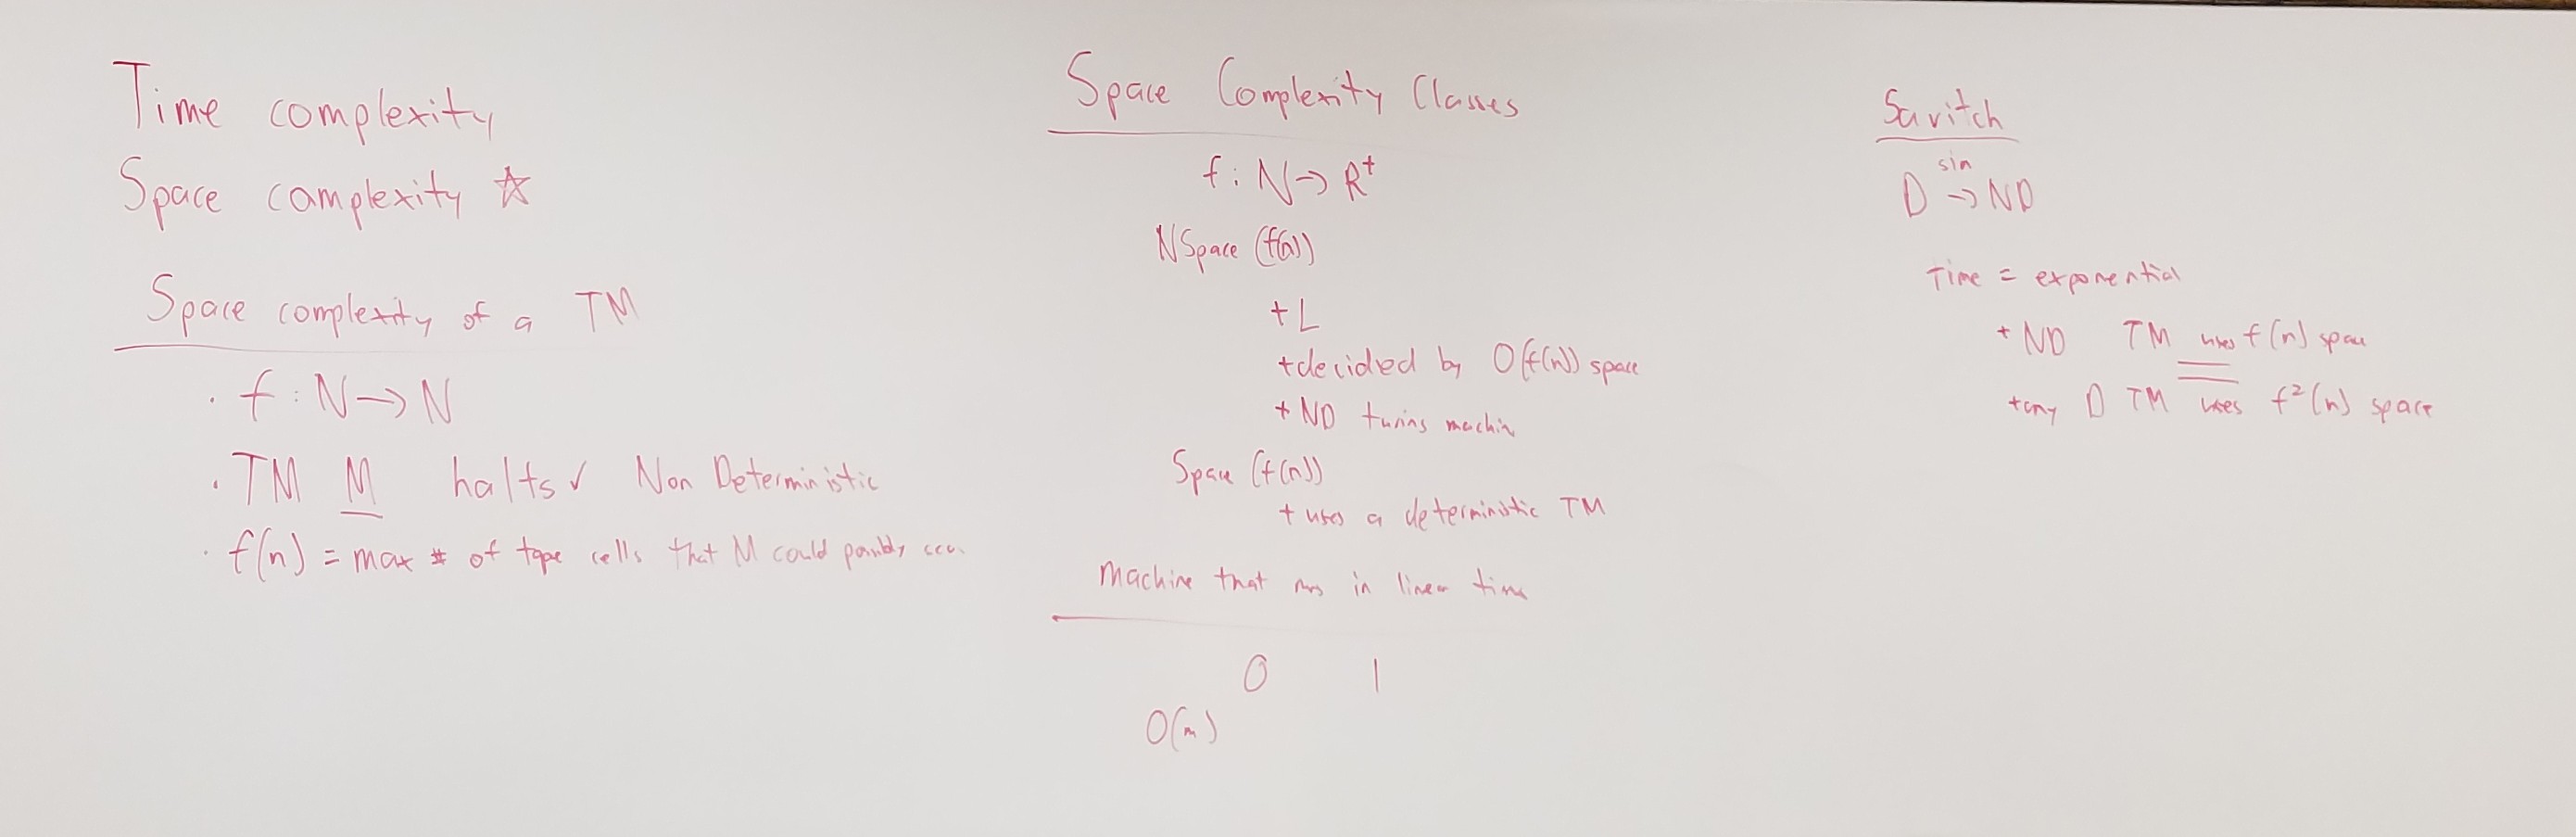 Time complexity
Space complexity ☆
Space complexity of a TM
· f : N → N
· TM M halts ✓ Non Deterministic
· f(n) = max # of tape cells that M could possibly
Space Complexity Classes
f : N → R⁺
NSpace (f(n))
+ L
+ decided by O(f(n)) space
+ ND turing machin
Space (f(n))
+ uses a deterministic TM
Machine that runs in linear time
0 1
O(n)
Savitch
sin
D → ND
Time = exponential
+ ND TM uses f(n) space
+ any D TM uses f²(n) space